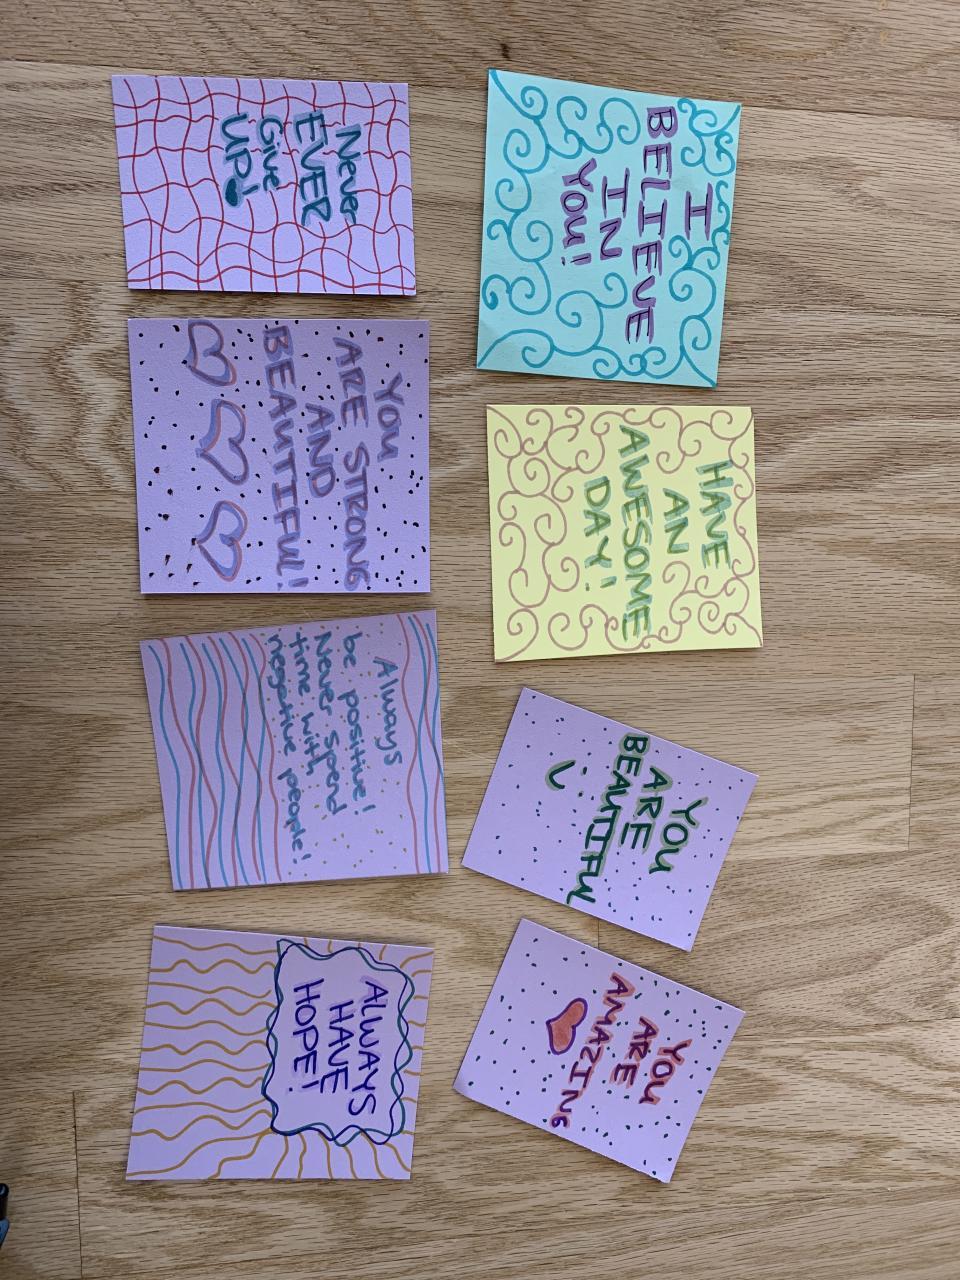 I
BELIEVE
IN
YOU!
HAVE
AN
AWESOME
DAY!
YOU
ARE
BEAUTIFUL
YOU
ARE
AMAZING
Never
EVER
Give
UP!
YOU
ARE STRONG
AND
BEAUTIFUL!
Always
be positive!
Never Spend
time with
negative people!
ALWAYS
HAVE
HOPE!